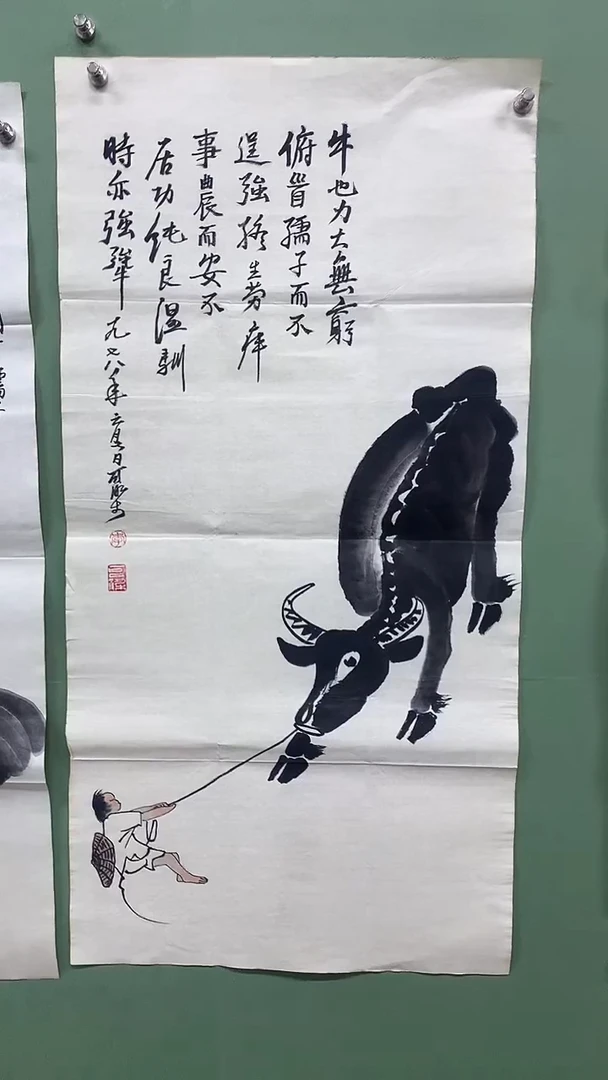 牛也力大無窮
俯首孺子而不
逞強終生勞瘁
事農而安不
居功純良温馴
時亦強犟 九七八年 日可染